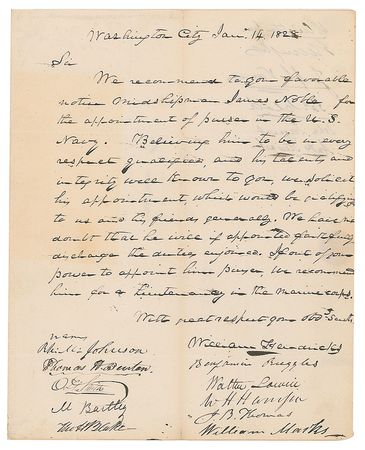 Washington City Jan'. 14. 1828
Sir
We recommend to your favorable
notice Midshipman James Noble for
the appointment of purser in the U. S.
Navy. Believing him to be in every
respect qualified, and his talents and
integrity well known to you, we solicit
his appointment, which would be gratifying
to us and his friends generally. We have no
doubt that he will if appointed faithfully
discharge the duties enjoined. If out of your
power to appoint him purser, we recommend
him for a Lieutenancy in the marine corps.
With great respect your Obdt. Servts.
William Hendricks
Benjamin Ruggles
Walter Lowrie
W H Harrison
J B. Thomas
William Marks
Johnson
Thomas H. Benton
M Bartley
Thos H Blake